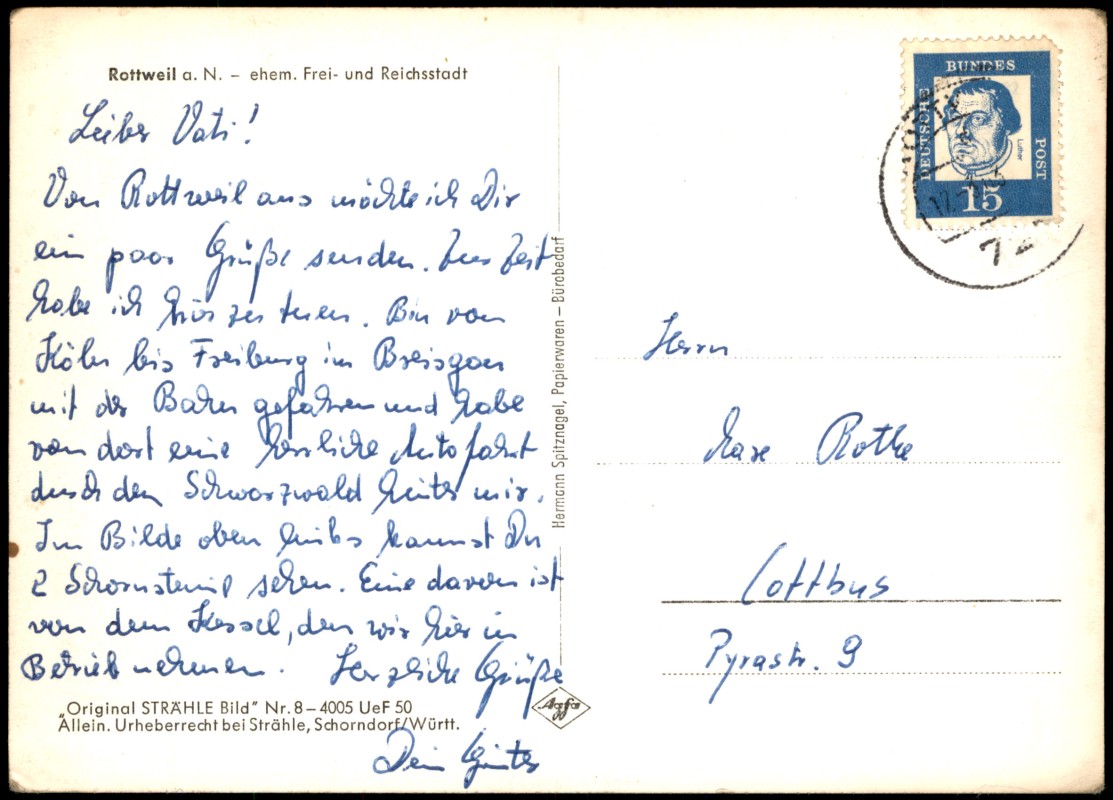 Rottweil a. N. – ehem. Frei- und Reichsstadt
Lieber Vati!
Von Rottweil aus möchte ich Dir
ein paar Grüße senden. Zur Zeit
habe ich hier zu tuen. Bin von
Köln bis Freiburg im Breisgau
mit der Bahn gefahren und habe
von dort eine herrliche Autofahrt
durch den Schwarzwald hinter mir.
Im Bilde oben links kannst Du
2 Schornsteine sehen. Eine davon ist
von dem Kessel, den wir hier in
Betrieb nehmen. Herzliche Grüße
Dein Günter
"Original STRÄHLE Bild" Nr. 8 – 4005 UeF 50
Allein. Urheberrecht bei Strähle, Schorndorf/Württ.
Agfa
Hermann Spitznagel, Papierwaren – Bürobedarf
DEUTSCHE BUNDES POST
Luther
15
Herrn
Rothe
Cottbus
Pyrastr. 9